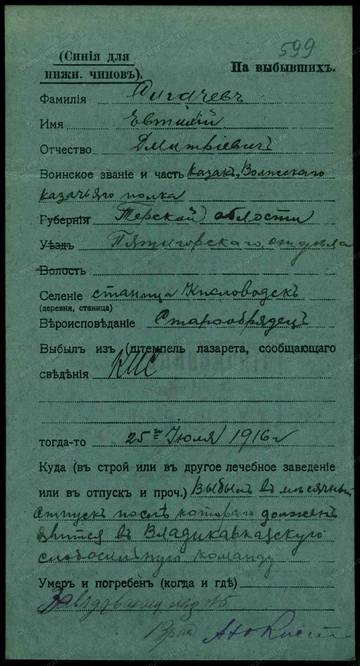 599
(Синія для нижн. чиновъ).
На выбывшихъ.
Фамилія Дигачевъ
Имя Евтихій
Отчество Дмитріевичъ
Воинское званіе и часть казак, Волжскаго
казачьяго полка
Губернія Терской области
Уѣздъ Пятигорскаго отдѣла
Волость
Селеніе станица Кисловодскъ
(деревня, станица)
Вѣроисповѣданіе Старообрядецъ
Выбылъ изъ (штемпель лазарета, сообщающаго
свѣдѣнія)
тогда-то 25го Іюля 1916 г
Куда (въ строй или въ другое лечебное заведеніе
или въ отпускъ и проч.) Выбылъ въ мѣсячный
отпускъ послѣ котораго долженъ
явится въ Владикавказскую
слабосильную команду
Умеръ и погребенъ (когда и гдѣ)
Врач